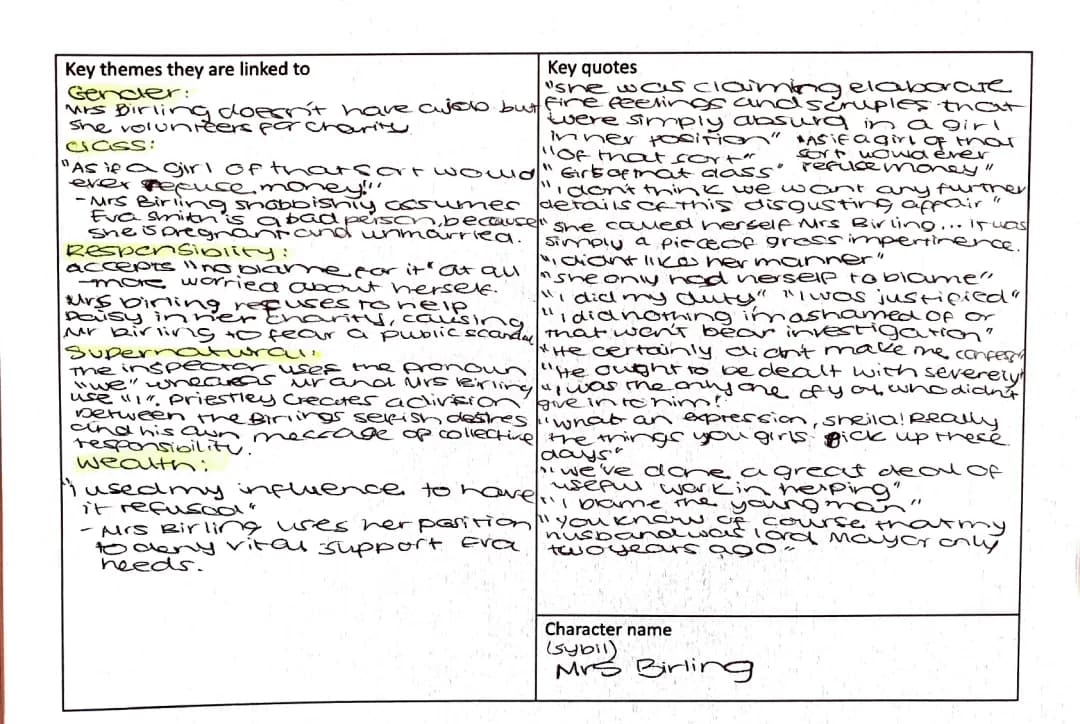 Key themes they are linked to
Gender:
Mrs Birling doesn't have a job but
she volunteers for charity
Class:
"As if a girl of that sort would
ever refuse money!"
- Mrs Birling snobbishly assumes
Eva Smith is a bad person, because
she is pregnant and unmarried.
Responsibility:
accepts "no blame for it" at all
- more worried about herself.
Mrs birling refuses to help
Daisy in her charity, causing
Mr birling to fear a public scandal
Supernatural:
The inspector uses the pronoun
"we" whereas Mr and Mrs Birling
use "I". Priestley creates a division
between the Birlings selfish desires
and his own message of collective
responsibility.
Wealth:
"I used my influence to have
it refused"
- Mrs Birling uses her position
to deny vital support Eva
needs.
Key quotes
"she was claiming elaborate
fine feelings and scruples that
were simply absurd in a girl
in her position" "As if a girl of that
"Of that sort" sort would ever
"Girls of that class" refuse money"
"I don't think we want any further
details of this disgusting affair"
"she called herself Mrs Birling... it was
simply a piece of gross impertinence.
"I didn't like her manner"
"she only had herself to blame"
"I did my duty" "I was justified"
"I did nothing im ashamed of or
that won't bear investigation"
"He certainly didn't make me confess"
"He ought to be dealt with severely"
"I was the only one of you who didn't
give in to him!"
"what an expression, sheila! Really
the things you girls pick up these
days"
"we've done a great deal of
useful work in helping"
"I blame the young man"
"You know of course that my
husband was lord Mayor only
two years ago"
Character name
(sybil)
Mrs Birling